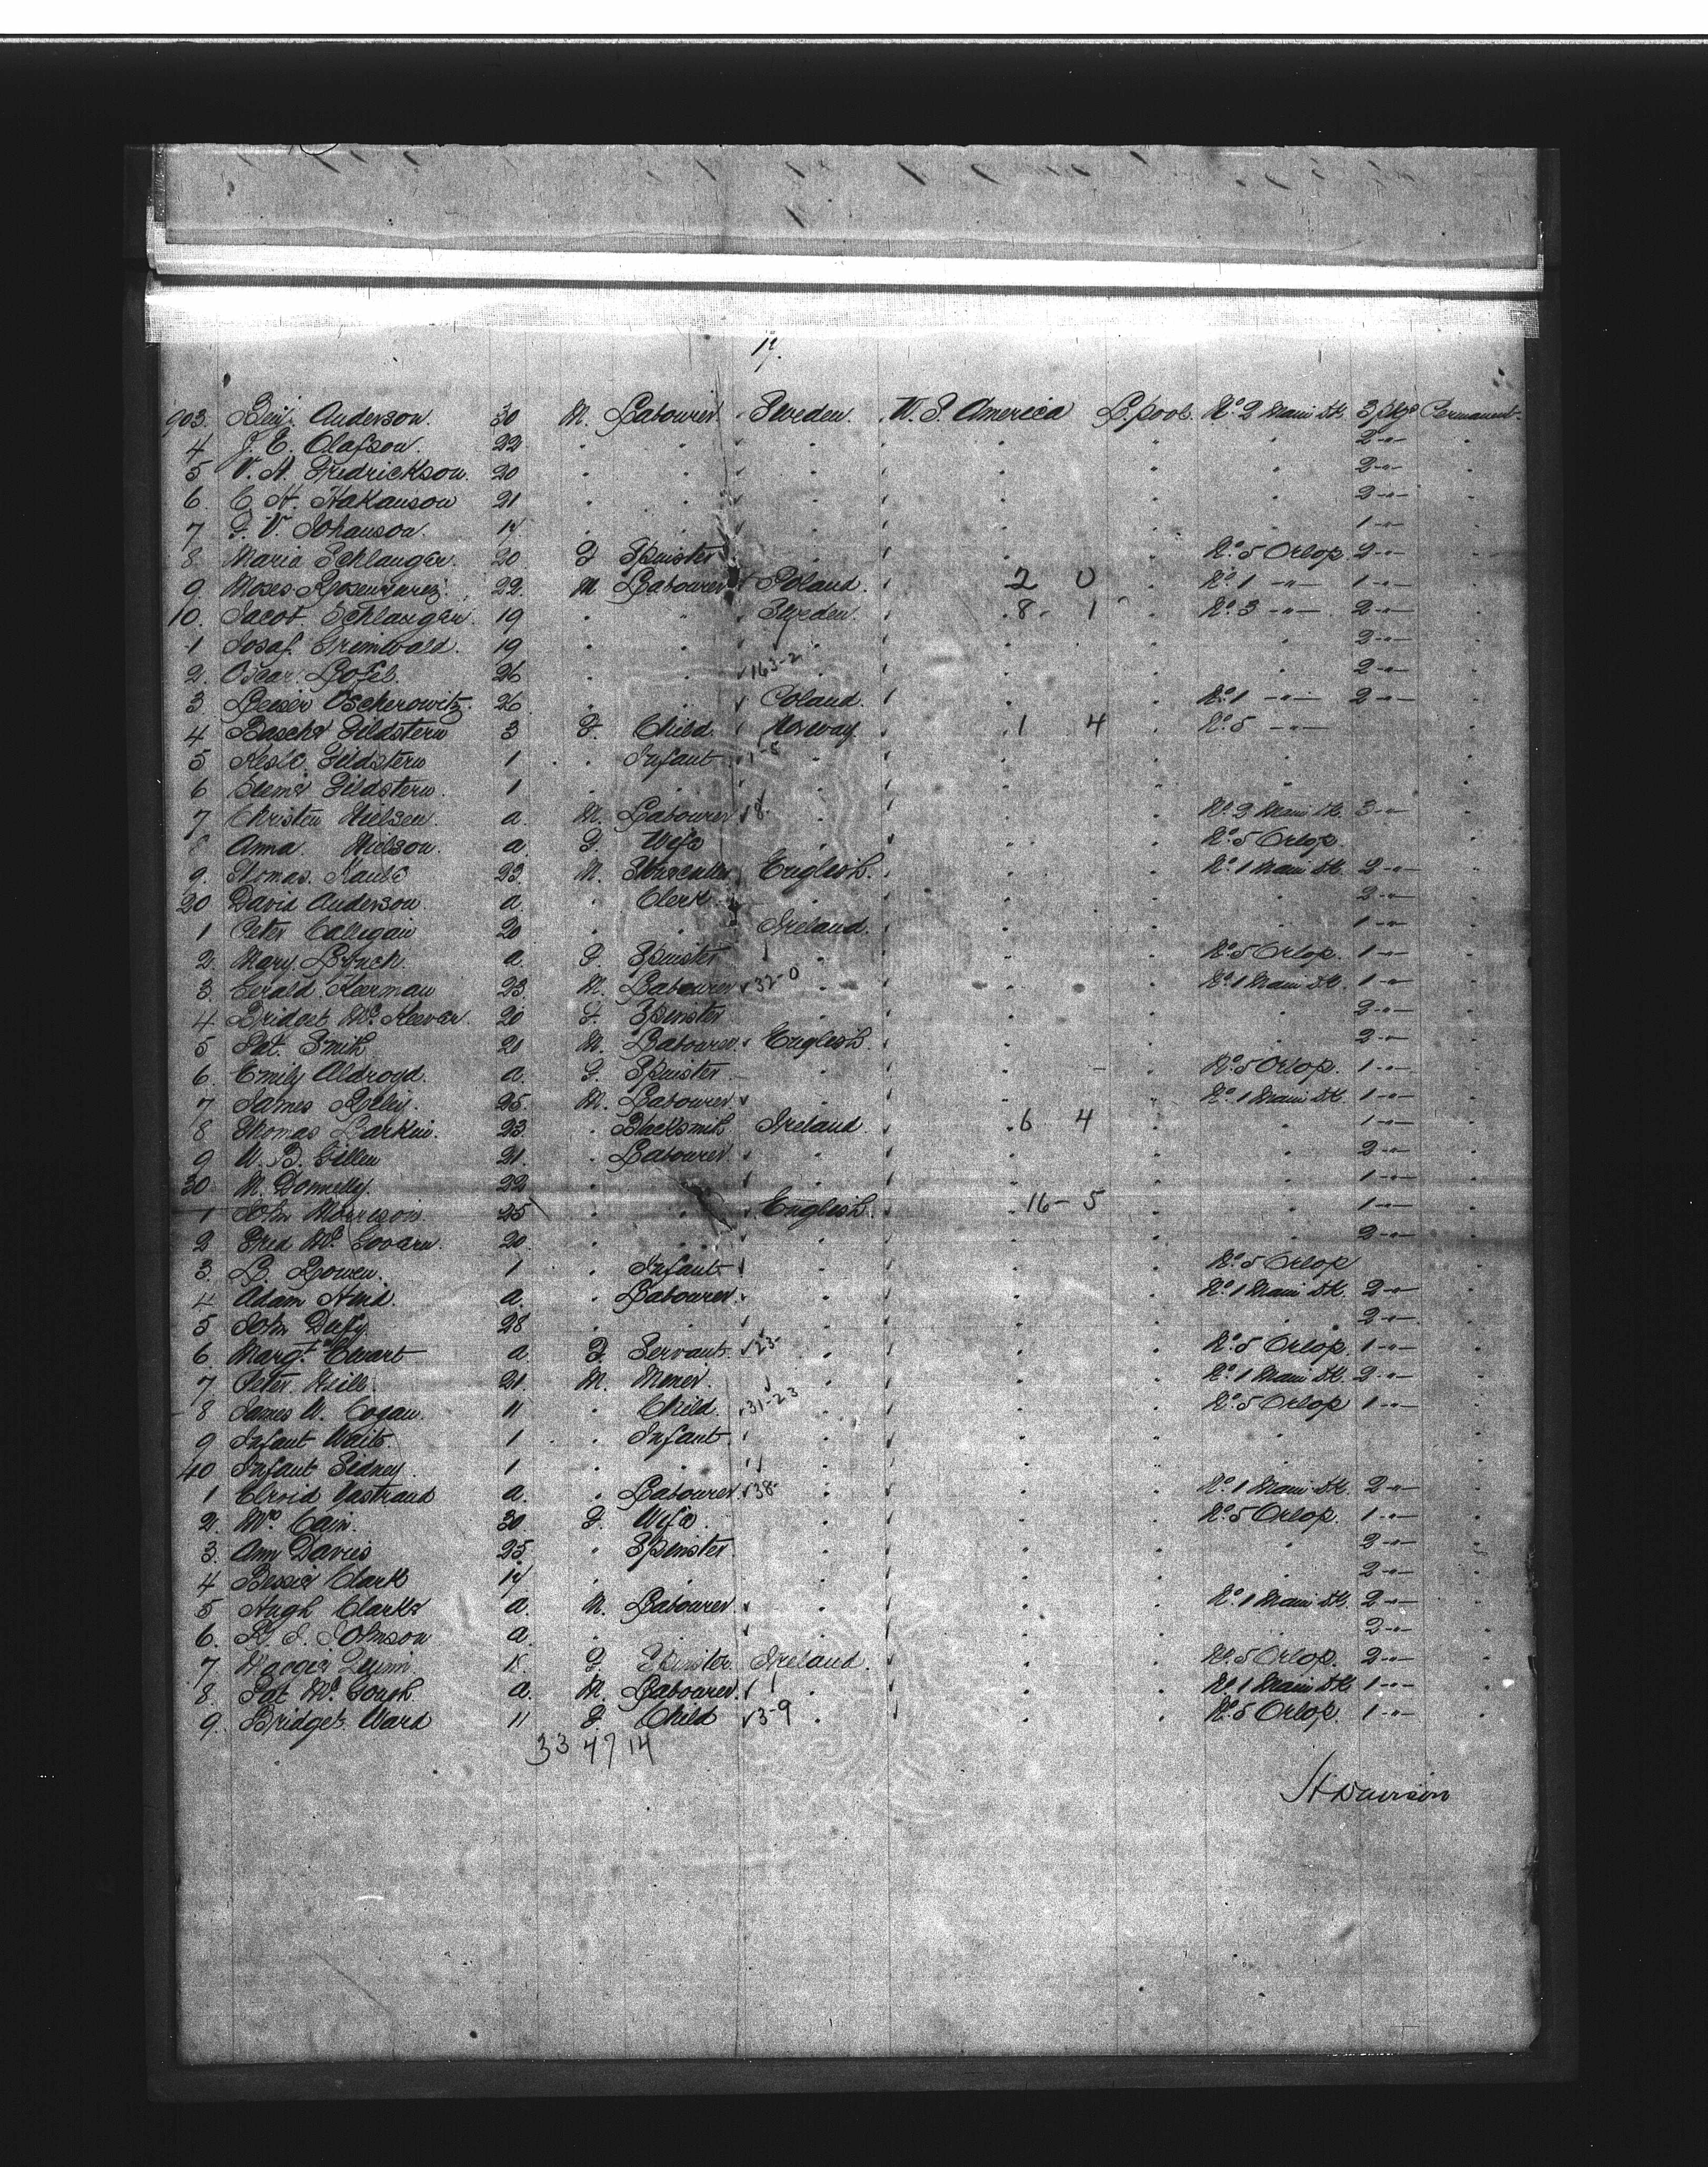 17.
903. Benj. Anderson. 30 M. Labourer. Sweden. U. S. America L.pool. No. 2 Main Dk. 3 pkgs Permanent.
4 J. E. Olafson. 22 " " " " " " 2 -"- "
5 V. A. Fredrickson. 20 " " " " " " 2 -"- "
6. C. A. Hakanson 21 " " " " " " 2 -"- "
7 F. V. Johanson. 17. " " " " " " 1 -"- "
8 Maria Schlauger. 20. F Spinster " " " No. 5 Orlop 2 -"- "
9 Moses 22. M Labourer Poland. 2 0 " No. 1 -"- 1 -"- "
10. Jacob Schlauger. 19 " " Sweden. 8 - 1 " No. 3 -"- 2 -"- "
1 Josaf. Grimwald. 19 " " " " " " 2 -"- "
2. Oscar 26 " " 163-2 " " " " 2 -"- "
3 Leeser Oscherowitz. 26 " " Poland. " " No. 1 -"- 2 -"- "
4 Bascha Gildstern 3 F. Child. Norway 1 4 " No. 5 -"- "
5 Gildstern 1 " Infant " " " " "
6 Gildstern. 1 " " " " " " "
7 Christen Nielsen. a. M. Labourer 8. " " " No. 2 Main Dk. 3 -"- "
8 Anna Nielson. a F. Wife " " " No. 5 Orlop. "
9. Thomas. 23. M. English. " " No. 1 Main Dk. 2 -"- "
20 David Anderson. a. " Clerk " " " " 2 -"- "
1 Peter Callegan 20 " " Ireland. " " " 1 -"- "
2. Mary Lynch. a F. Spinster " " " No. 5 Orlop. 1 -"- "
3. Gerald Keernan 23. M. Labourer 32-0 " " " No. 1 Main Dk. 1 -"- "
4 Bridget McKeevar. 20 F. Spinster " " " " 2 -"- "
5 Pat. Smith 21 M. Labourer. English. " " " 2 -"- "
6. Emily Aldroyd. a. F. Spinster " " " No. 5 Orlop. 1 -"- "
7 James Reley. 25. M. Labourer. " " " No. 1 Main Dk. 1 -"- "
8 Thomas Larkin. 23. " Blacksmith Ireland. 6 4 " " 1 -"- "
9 W. B. Gillen 21. " Labourer. " " " " 2 -"- "
30 M. Donnelly. 22 " " " " " " 1 -"- "
1 John Morreson. 25 " " English. 16 - 5 " " 1 -"- "
2 Fred McGovern. 20. " " " " " " 2 -"- "
3. B. Bowen. 1 " Infant " " " No. 5 Orlop "
4 Adam Hind. a. " Labourer. " " " No. 1 Main Dk. 2 -"- "
5 John Duffy 28 " " " " " " 2 -"- "
6. Margt. Ewart a. F. Servant. 23- " " " No. 5 Orlop. 1 -"- "
7 Peter Neill. 21. M. Miner. " " " No. 1 Main Dk. 2 -"- "
8 James W. Cogan. 11 " Child. 31-23 " " " No. 5 Orlop 1 -"- "
9 Infant Waite. 1 " Infant. " " " " "
40 Infant Sidney. 1 " " " " " " "
1 Yastrand a. " Labourer. 38- " " " No. 1 Main Dk. 2 -"- "
2. Mrs. Cain. 30. F. Wife. " " " No. 5 Orlop. 1 -"- "
3. Ann Davies 25. " Spinster. " " " " 2 -"- "
4 Bessie Clark 17 " " " " " " 2 -"- "
5 Hugh Clarke a. M. Labourer. " " " No. 1 Main Dk. 2 -"- "
6. Johnson a. " " " " " " 2 -"- "
7 Maggie Quinn 18. F. Spinster Ireland. " " No. 5 Orlop. 2 -"- "
8. Pat McGough a. M. Labourer. " " " No. 1 Main Dk 1 -"- "
9. Bridget Ward 11 F. Child 3-9 " " " No. 5 Orlop. 1 -"- "
33 47 14
H Davison